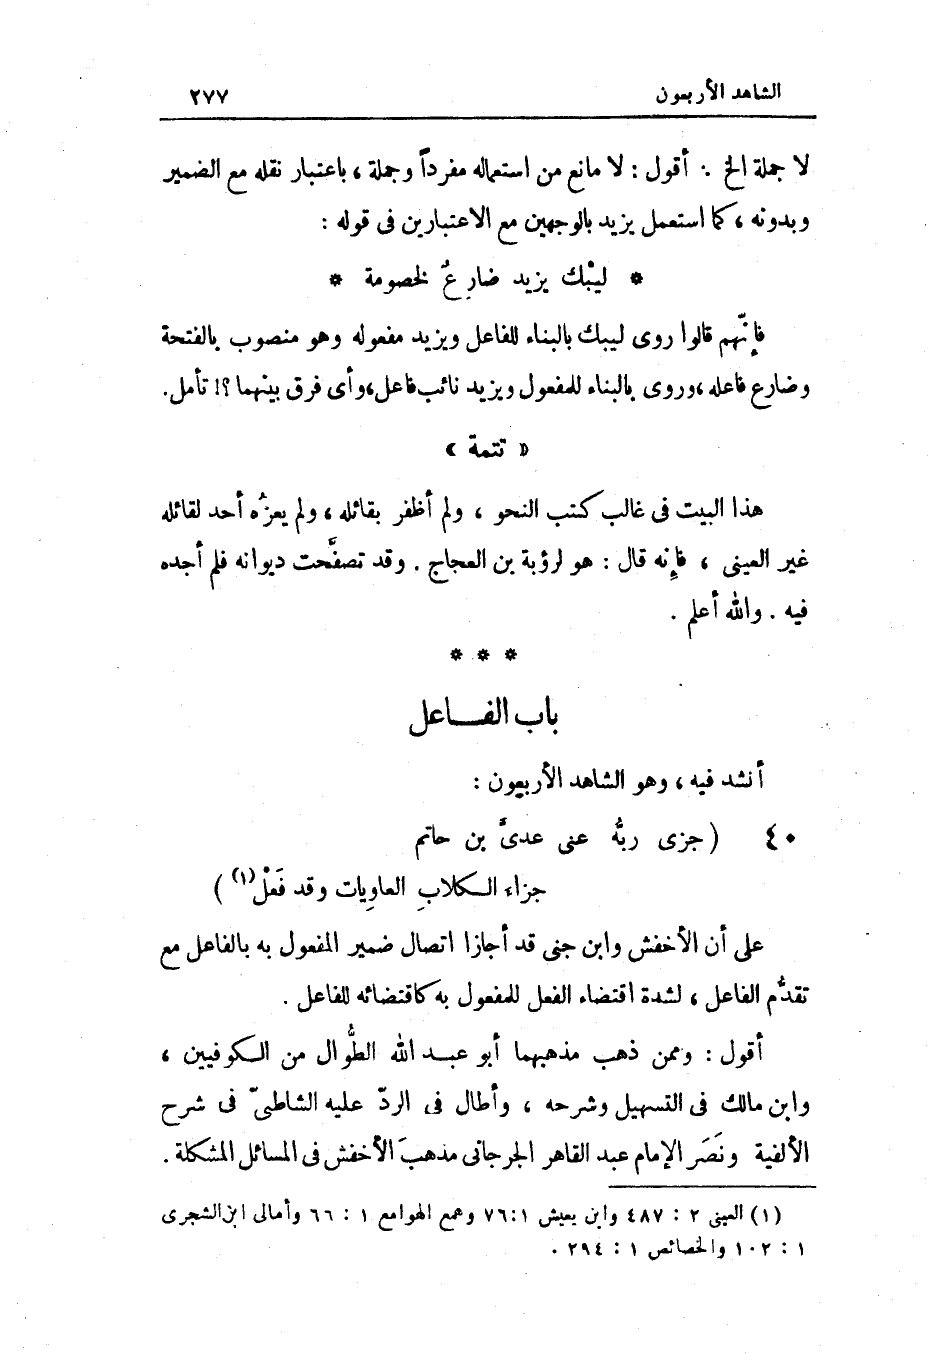 الشاهد الأربعون ٢٧٧
لا جملة الخ . أقول : لا مانع من استعماله مفرداً وجملة ، باعتبار نقله مع الضمير
وبدونه ، كما استعمل يزيد بالوجهين مع الاعتبارين فى قوله :
* ليبْك يزيد ضارِعٌ لخصومة *
فإنّهم قالوا روى ليبك بالبناء للفاعل ويزيد مفعوله وهو منصوب بالفتحة
وضارع فاعله ،وروى بالبناء للمفعول ويزيد نائب فاعل،وأى فرق بينهما ؟! تأمل.
« تتمة »
هذا البيت فى غالب كتب النحو ، ولم أظفر بقائله ، ولم يعزُه أحد لقائله
غير العينى ، فإنه قال : هو لرؤبة بن العجاج . وقد تصفَّحت ديوانه فلم أجده
فيه . والله أعلم .
* * *
باب الفـــاعل
أنشد فيه ، وهو الشاهد الأربعون :
٤٠ ( جزى ربُّه عنى عدىَّ بن حاتم
جزاء الـكلابِ العاوِيات وقد فَعَلْ(١) )
على أن الأخفش وابن جنى قد أجازا اتصال ضمير المفعول به بالفاعل مع
تقدُّم الفاعل ، لشدة اقتضاء الفعل للمفعول به كاقتضائه للفاعل .
أقول : وممن ذهب مذهبهما أبو عبـد الله الطُّوال من الـكوفيين ،
وابن مالك فى التسهيل وشرحه ، وأطال فى الردّ عليه الشاطبىّ فى شرح
الألفية ونَصَر الإمام عبد القاهر الجرجانى مذهبَ الأخفش فى المسائل المشكلة .
(١) العينى ٢ : ٤٨٧ وابن يعيش ١ :٧٦ وهمع الهوامع ١ : ٦٦ وأمالى ابن الشجرى
١ : ١٠٢ والخصائص ١ : ٢٩٤ .